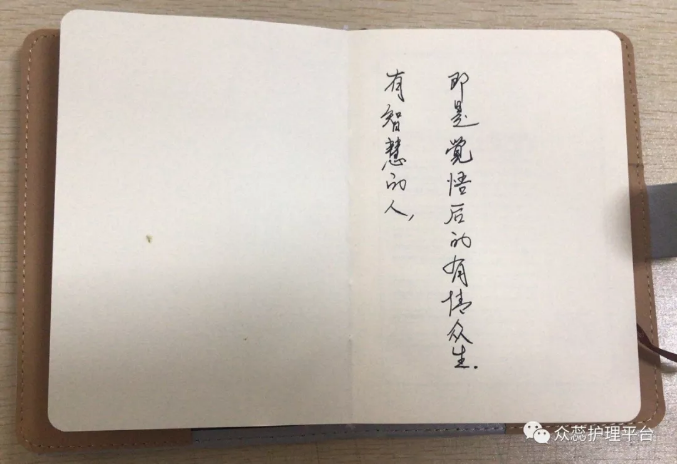 有智慧的人,
即是觉悟后的有情众生.
众蕊护理平台